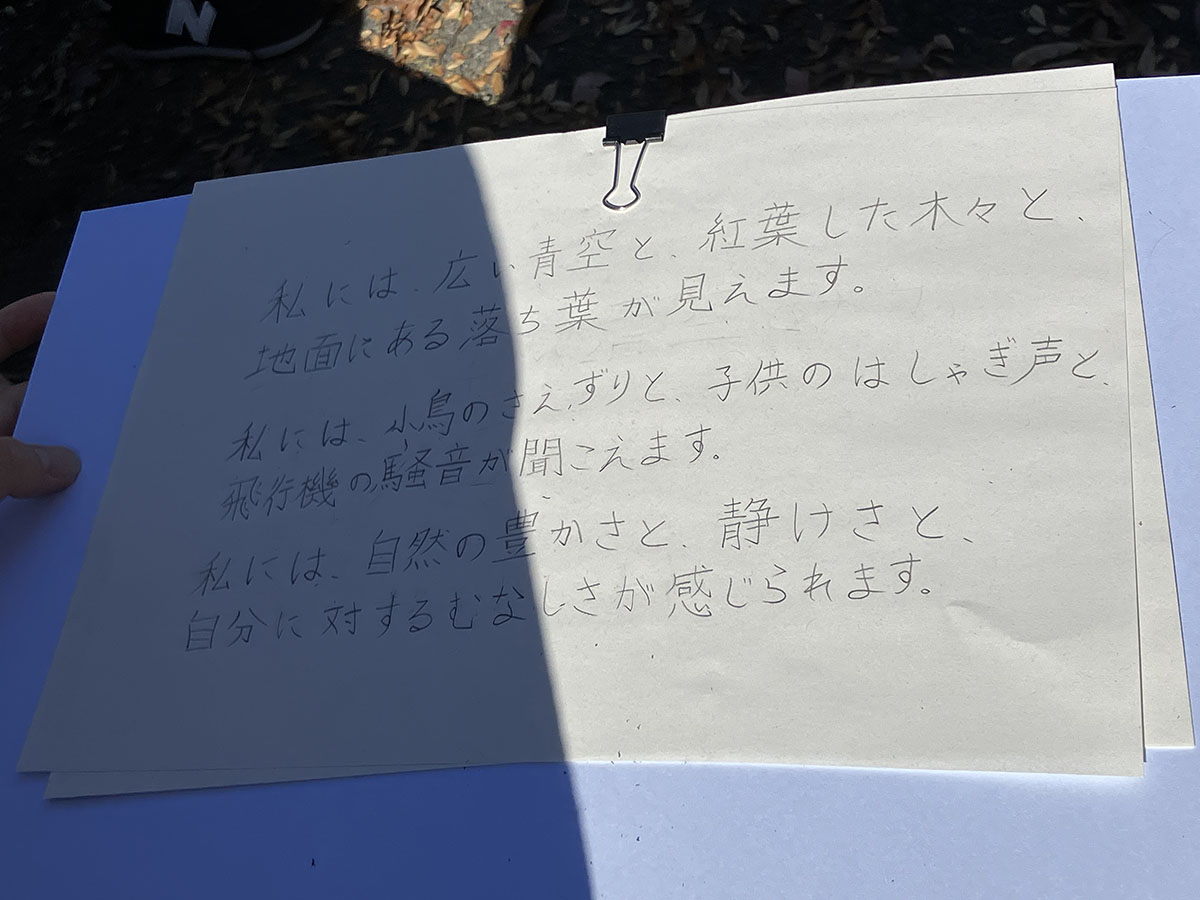 N
私には、広い青空と、紅葉した木々と、
地面にある落ち葉が見えます。
私には、小鳥のさえずりと、子供のはしゃぎ声と、
飛行機の騒音が聞こえます。
私には、自然の豊かさと、静けさと、
自分に対するむなしさが感じられます。